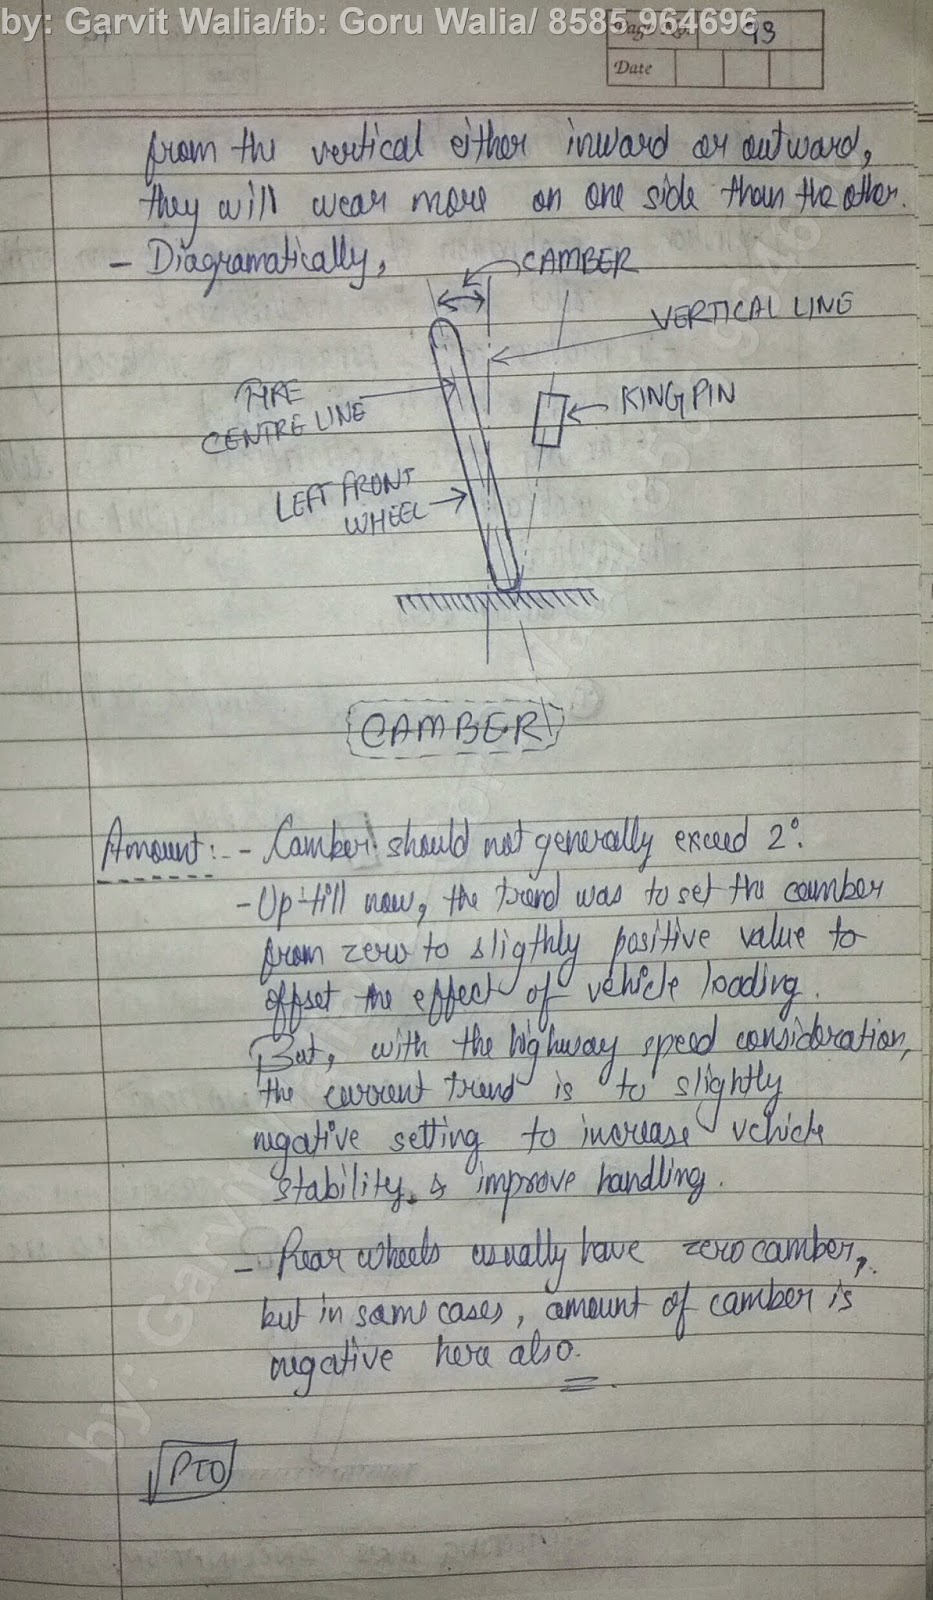 by: Garvit Walia/fb: Goru Walia/ 8585 964696
Page No. 93
Date
from the vertical either inward or outward,
they will wear more on one side than the other.
- Diagramatically,
CAMBER
VERTICAL LINE
TYRE
CENTRE LINE
KING PIN
LEFT FRONT
WHEEL
CAMBER
Amount :- - Camber should not generally exceed 2°.
- Up till now, the trend was to set the camber
from zero to sligthly positive value to
offset the effect of vehicle loading.
But, with the highway speed consideration,
the current trend is to slightly
negative setting to increase vehicle
stability & improve handling.
- Rear wheels usually have zero camber,
but in some cases, amount of camber is
negative here also.
PTO